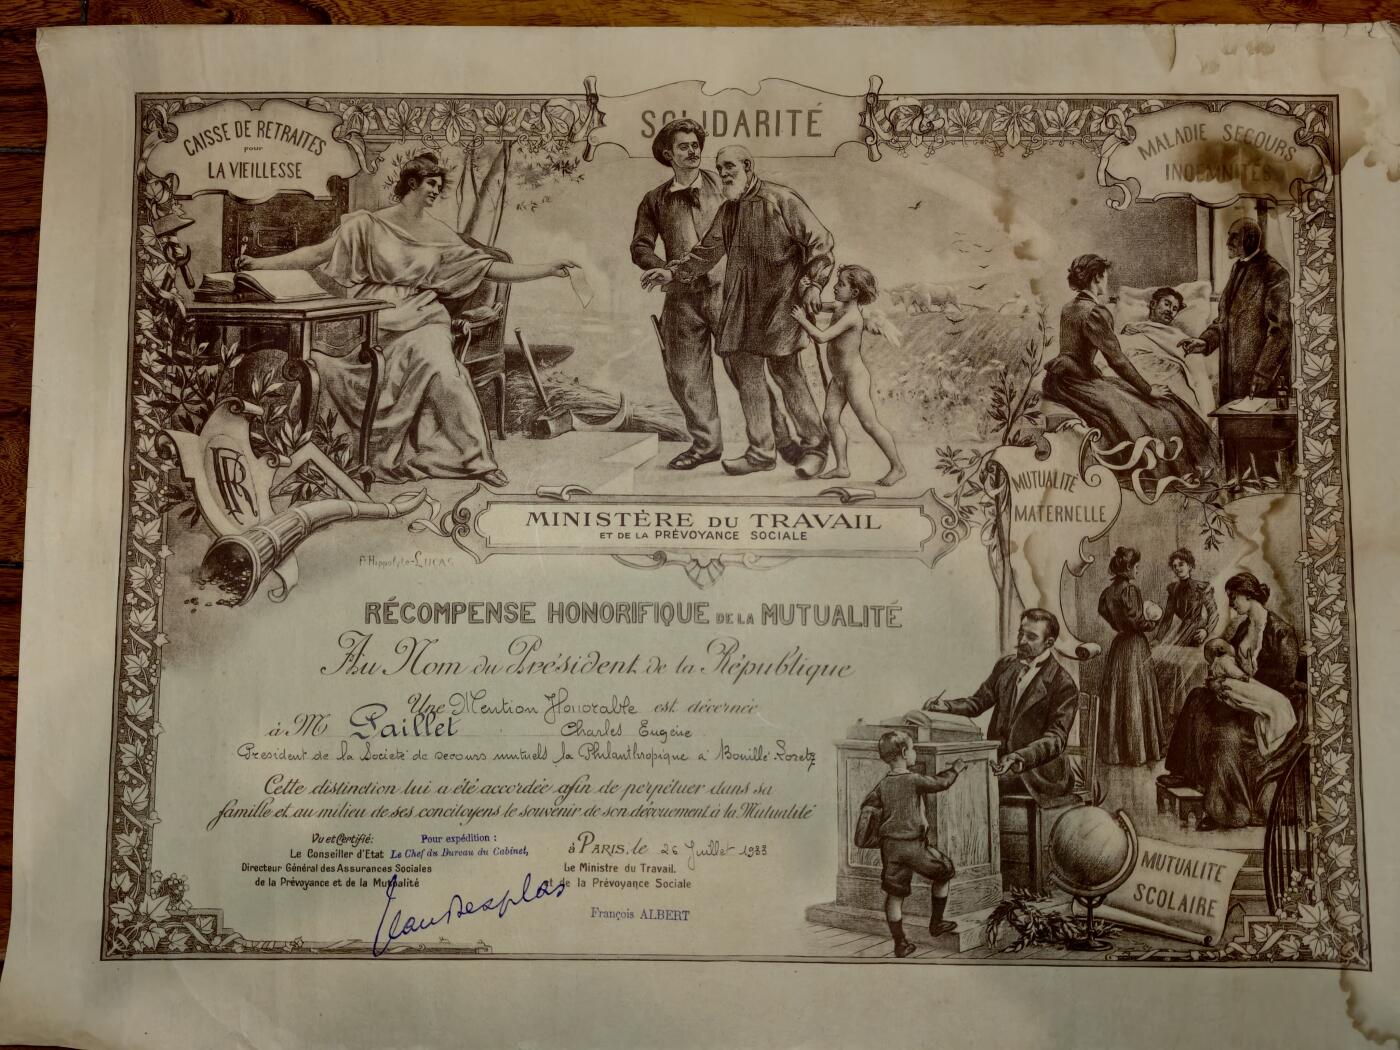 CAISSE DE RETRAITES
pour
LA VIEILLESSE
SOLIDARITÉ
MALADIE SECOURS
INDEMNITÉS
RF
MUTUALITÉ
MATERNELLE
MINISTÈRE DU TRAVAIL
ET DE LA PRÉVOYANCE SOCIALE
P. Hippolyte-LUCAS
RÉCOMPENSE HONORIFIQUE DE LA MUTUALITÉ
Au Nom du Président de la République
Une Mention Honorable est décernée
à M Paillet Charles Eugène
Président de la Société de secours mutuels la Philanthropique à Bouillé-Loretz
Cette distinction lui a été accordée afin de perpétuer dans sa
famille et au milieu de ses concitoyens le souvenir de son dévouement à la Mutualité
Vu et Certifié:
Le Conseiller d'Etat
Directeur Général des Assurances Sociales
de la Prévoyance et de la Mutualité
Pour expédition :
Le Chef du Bureau du Cabinet,
Jean Desplas
à PARIS, le 26 Juillet 1933
Le Ministre du Travail.
et de la Prévoyance Sociale
François ALBERT
MUTUALITÉ
SCOLAIRE